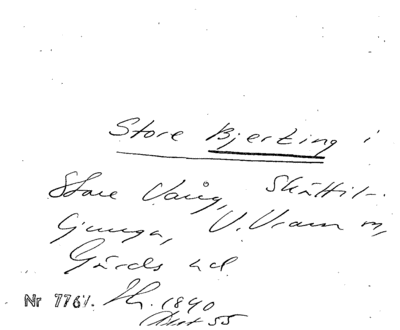 Store Bjerking i
Store Vång, Skättil-
ljunga, V. Vram m,
Gärds hd
Nr 776/. Sk. 1840
Akt 55